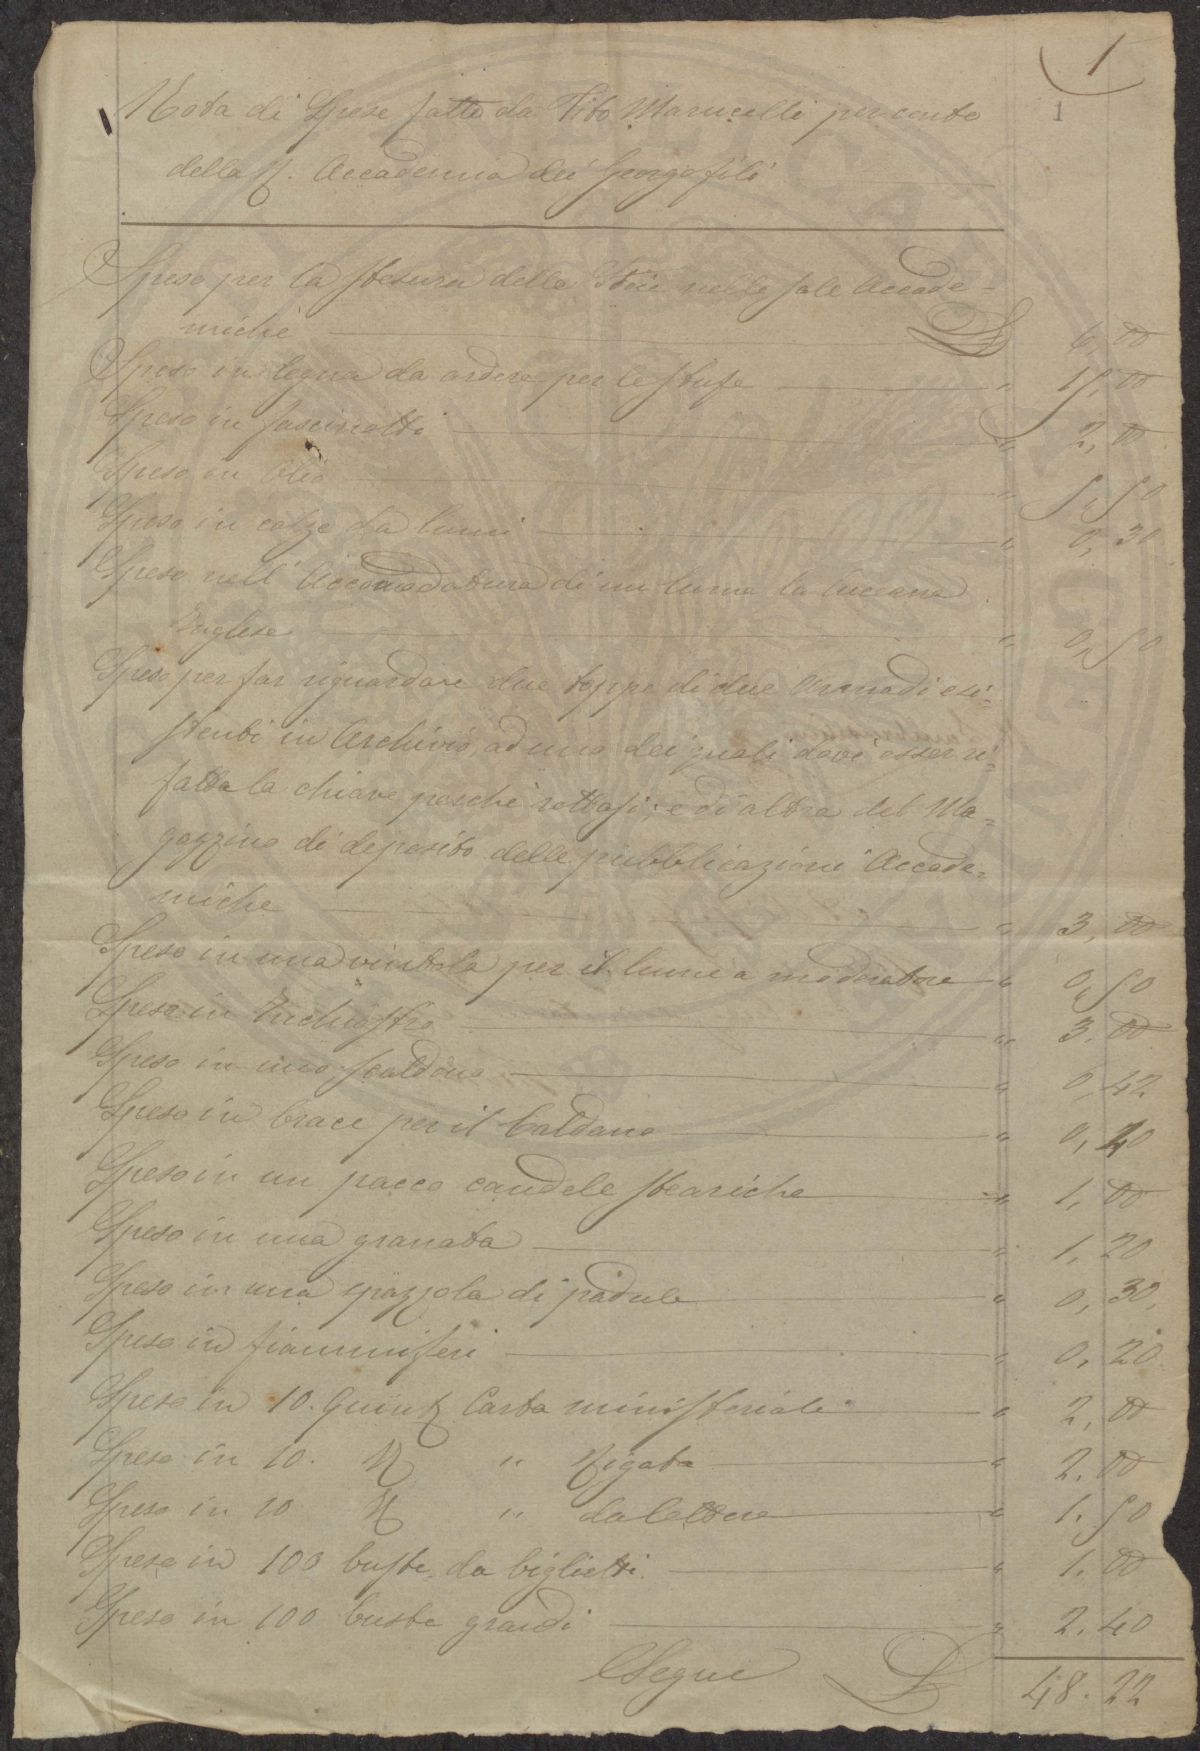 1
1
Nota di Spese fatte da Tito Marucelli per conto
della R. Accademia dei Georgofili
Speso per la stesura delle Stoie nelle sale Accade=
miche £ 6,00
Speso in legna da ardere per le stufe " 15,00
Speso in fascinotti " 2,00
Speso in Olio " 5,50
Speso in calze da lumi " 0,30
Speso nell'Accomodatura di un lume la lucerna
Inglese " 0,50
Speso per far riguardare due toppe di due Armadi esi=
stenti in Archivio, ad uno dei quali dové esser ri=
fatta la chiave perché rottasi; e di altra del Ma=
gazzino di deposito delle pubblicazioni Accade=
miche " 3,00
Speso in una ventola per il lume a moderatore " 0,50
Speso in Inchiostro " 3.00
Speso in uno scaldino " 0,42
Speso in brace per il Caldano " 0,40
Speso in un pacco candele steariche " 1,00
Speso in una granata " 1,20
Speso in una spazzola di padule " 0,30,
Speso in fiammiferi " 0,20
Speso in 10. Quint Carta ministeriale " 2,00
Speso in 10. " Rigata " 2.00
Speso in 10 " da lettere " 1.50
Speso in 100 buste da biglietti " 1.00
Speso in 100 buste grandi " 2.40
Segue £ 48.22